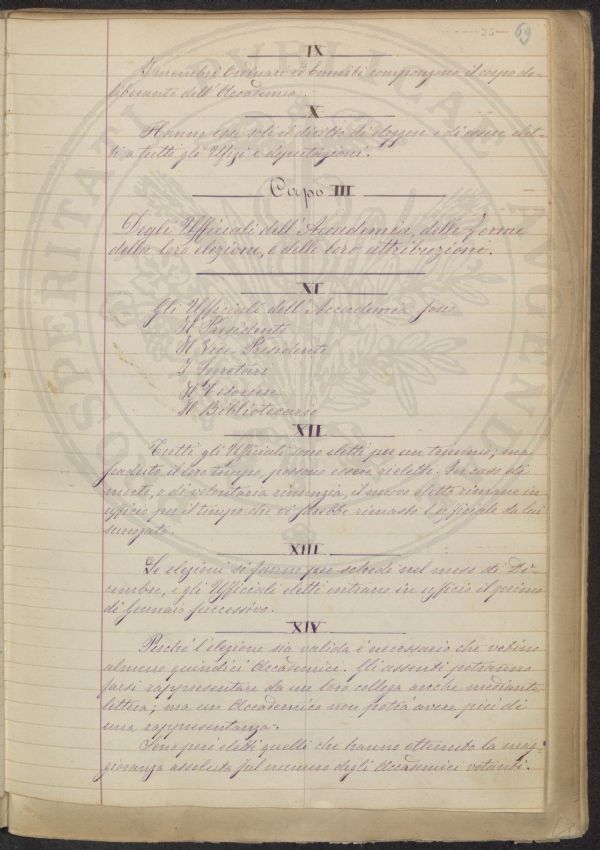 35 69
IX
I membri Ordinari ed Emeriti compongono il corpo de-
liberante dell'Accademia.
X
Hanno essi soli il diritto di eleggere e di essere elet-
ti a tutti gli Uffizi e deputazioni.
Capo III
Degli Ufficiali dell'Accademia, delle forme
della loro elezione, e delle loro attribuzioni.
XI
Gli Ufficiali dell'Accademia sono
Il Presidente
Il Vice-Presidente
I Secretari
Il Tesoriere
Il Bibliotecario
XII
Tutti gli Ufficiali sono eletti per un triennio; ma
scaduto il loro tempo, possono essere rieletti. In caso di
morte, o di volontaria rinunzia, il nuovo eletto rimane in
ufficio per il tempo che vi sarebbe rimasto l'ufficiale da lui
surrogato.
XIII
Le elezioni si fanno per schede nel mese di Di-
cembre, e gli Ufficiali eletti entrano in ufficio il primo
di Gennaio successivo.
XIV
Perché l'elezione sia valida è necessario che votino
almeno quindici Accademici. Gli assenti potranno
farsi rappresentare da un loro collega anche mediante
lettera; ma un Accademico non potrà avere più di
una rappresentanza.
Sono però eletti quelli che hanno ottenuto la mag-
gioranza assoluta sul numero degli Accademici votanti.
PROSPERITATI PUBLICAE AUGENDAE